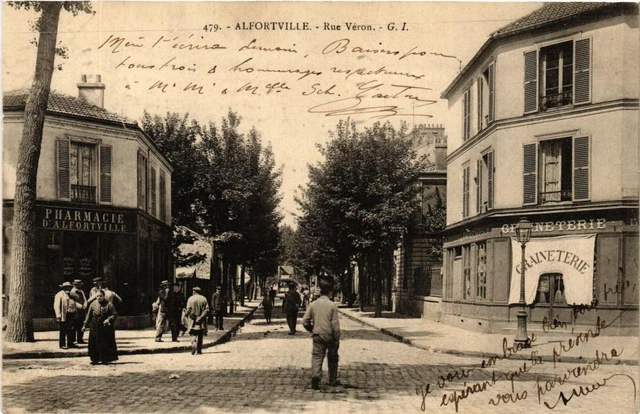 479. - ALFORTVILLE. - Rue Véron. - G. I.
Mimi t'écrira demain, Baisers pour
tous trois & hommages respectueux
à Mr Mme & Melle Sch. Gaston
PHARMACIE
D'ALFORTVILLE
GRAINETERIE
GRAINETERIE
Je vous embrasse bien fort
espérant que la prochaine
vous parviendra